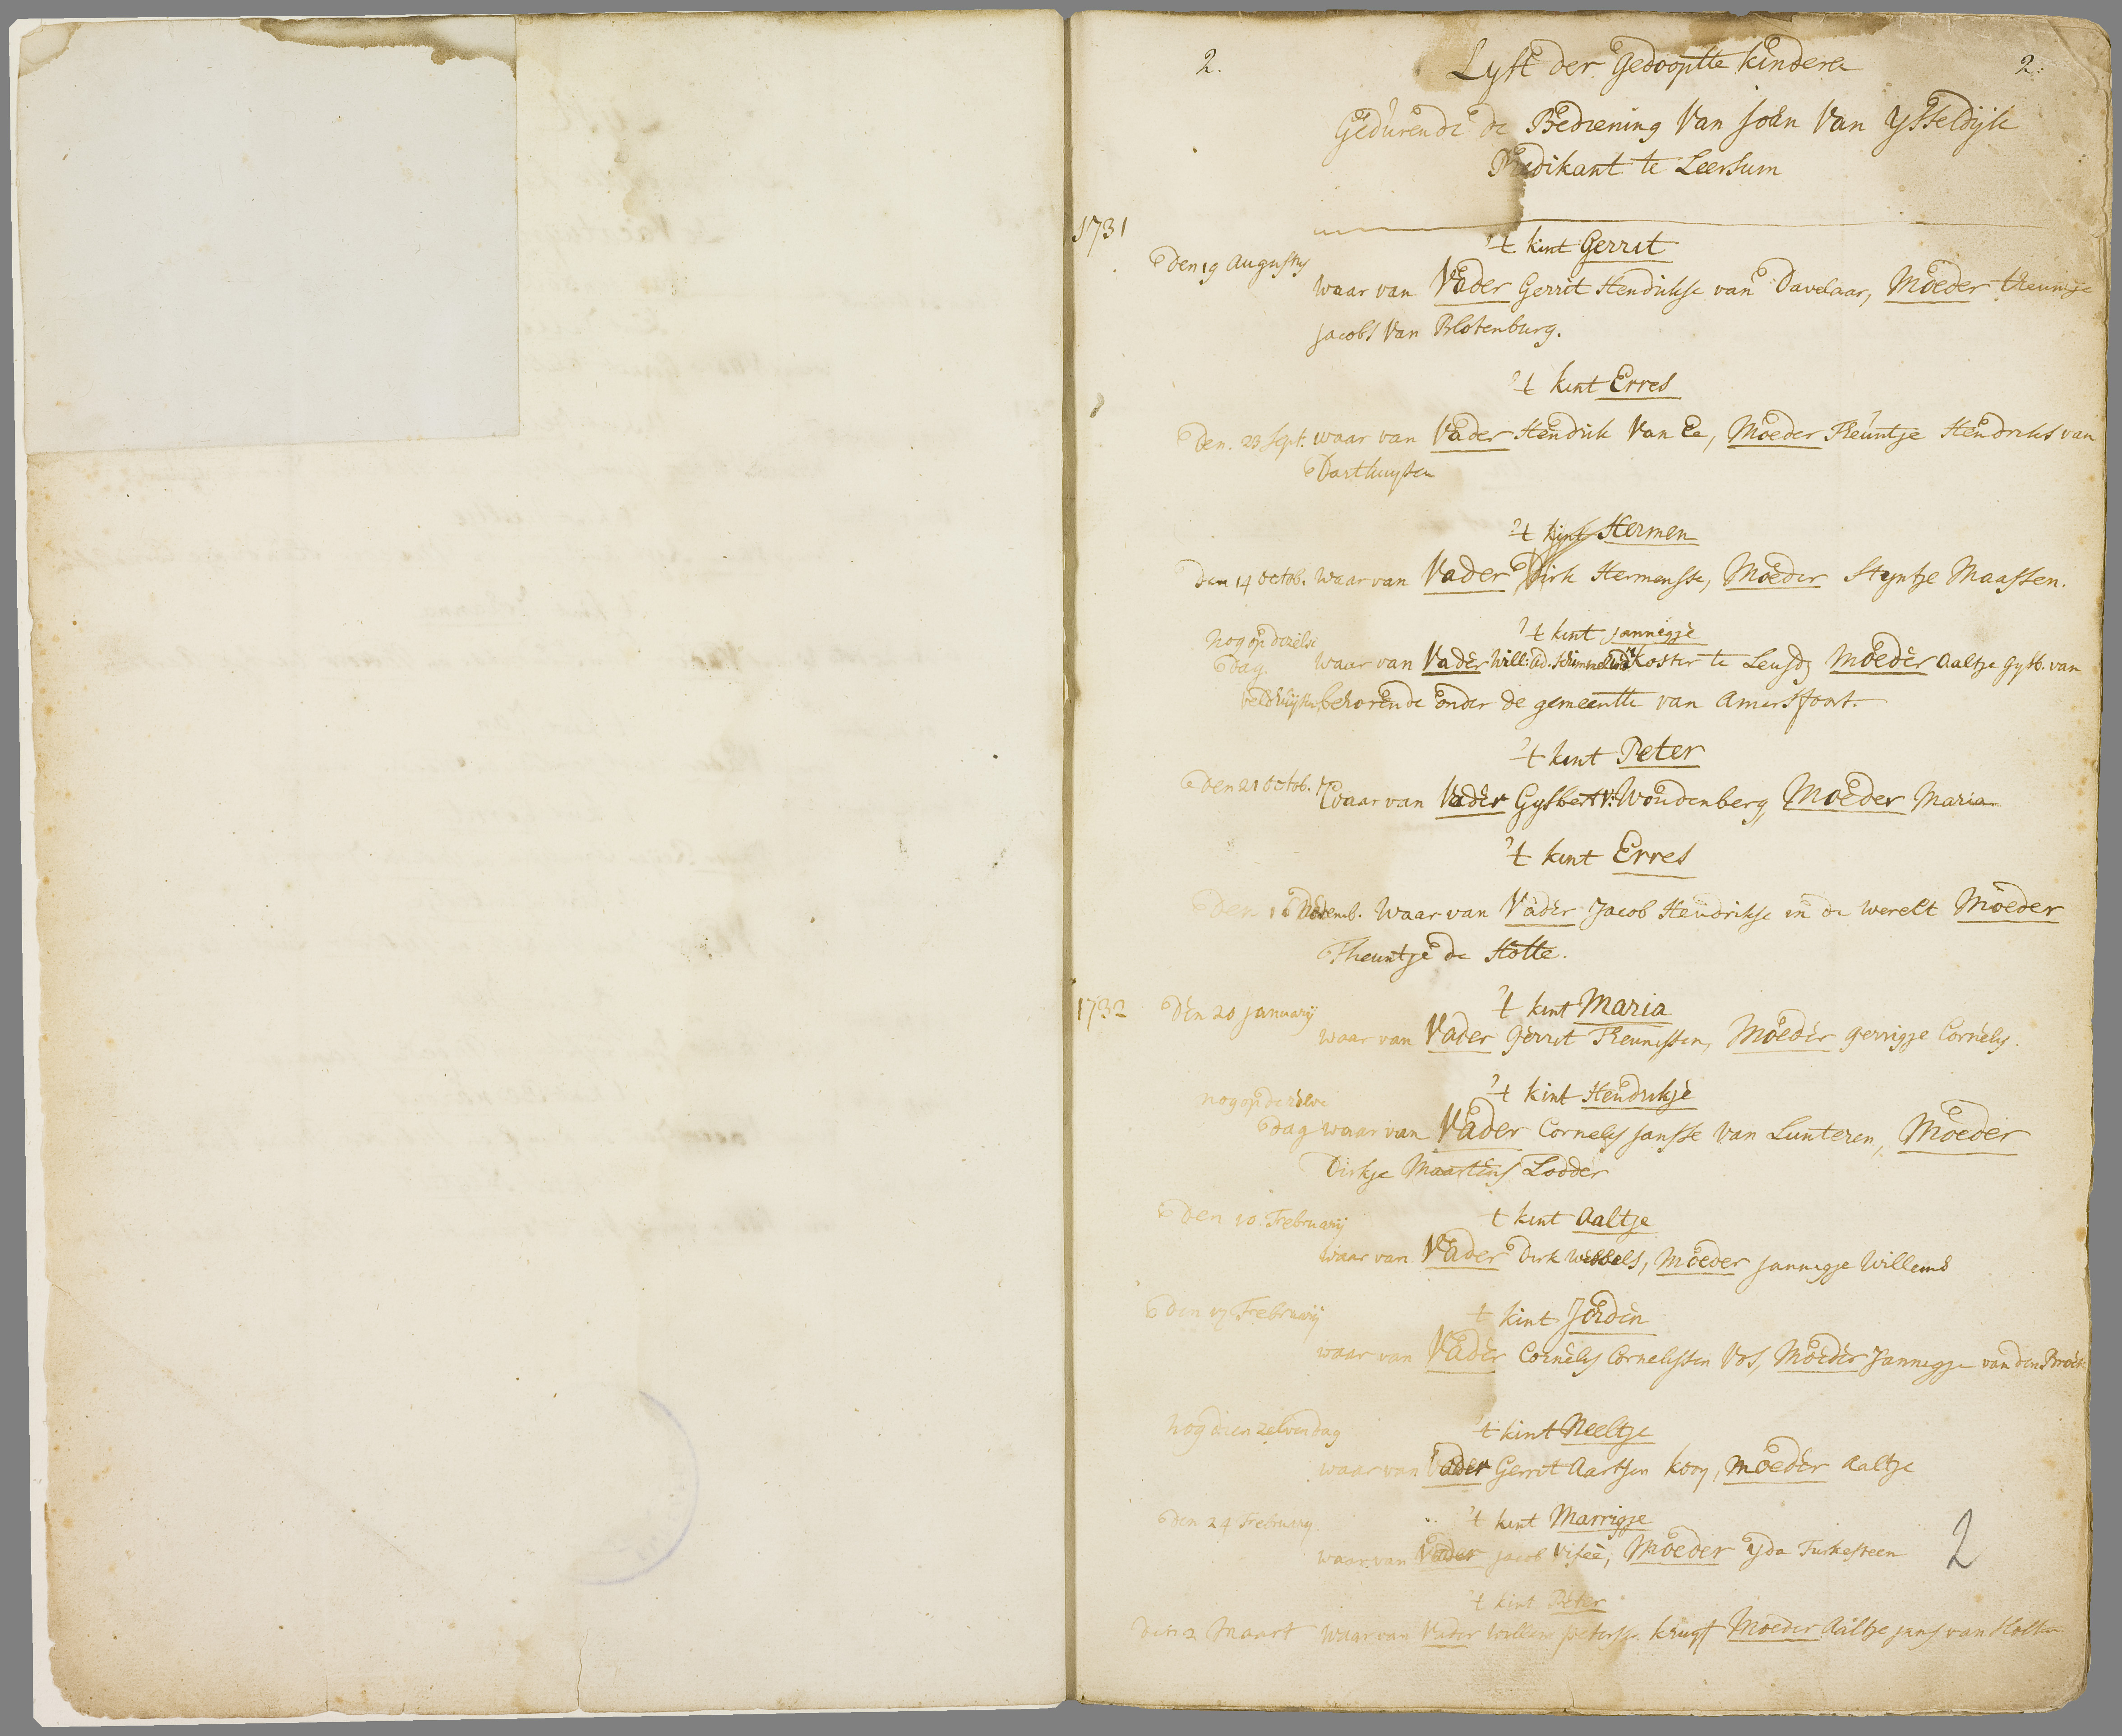 2. Lyst der gedooptte kindere 2:
Gedurende de Bediening Van Joan Van Ysseldijk
Predikant te Leersum
1731
't kint Gerrit
Den 19 Augustus
waar van Vader Gerrit Hendrikse van Davelaar, Moeder theuntje
Jacobs Van Blotenburg.
't kint Erres
Den. 23 Sept. waar van Vader Hendrik Van Ee, Moeder Theuntje Hendriks van
Darthuysen
't kint Hermen
Den 14 octob. Waar van Vader Dirk Hermensse, Moeder Styntje Maassen.
't kint Jannegje
nog op dezelve
dag. waar van Vader Will: Koster te Leusd; Moeder Aaltje Gysb. van
Veldhuysen, behorende onder de gemeentte van Amersfoort.
't kint Peter
Den 21 octob. Waar van Vader Gysbert V: Woudenberg, Moeder Maria
't kint Erres
Den Waar van Vader Jacob Hendrikse in de werelt Moeder
Theuntje de Hotte.
1732 Den 20 January 't kint Maria
waar van Vader Gerrit Theunissen, Moeder Gerrigje Cornelis.
nog op dezelve 't kint Hendrikje
dag waar van Vader Cornelys Jansse Van Lunteren, Moeder
Dirkje Maartens Lodder
Den 10. February t kint Aaltje
waar van Vader Dirk Wessels, Moeder Jannigje Willems
Den 17 February t kint Jorden
waar van Vader Cornelys Cornelissen Vos, Moeder Jannigje van den Broek
nog dien zelven dag 't kint Neeltje
waar van Vader Gerrit Aartsen kooy, Moeder Aaltje
Den 24 February 't kint Marrigje
waar van Vader Jacob Viseé, Moeder Yda Turkesteen
2
't kint Peter
Den 2 Maart waar van Vader Willem Peterse kruyt Moeder Aaltje Jans van